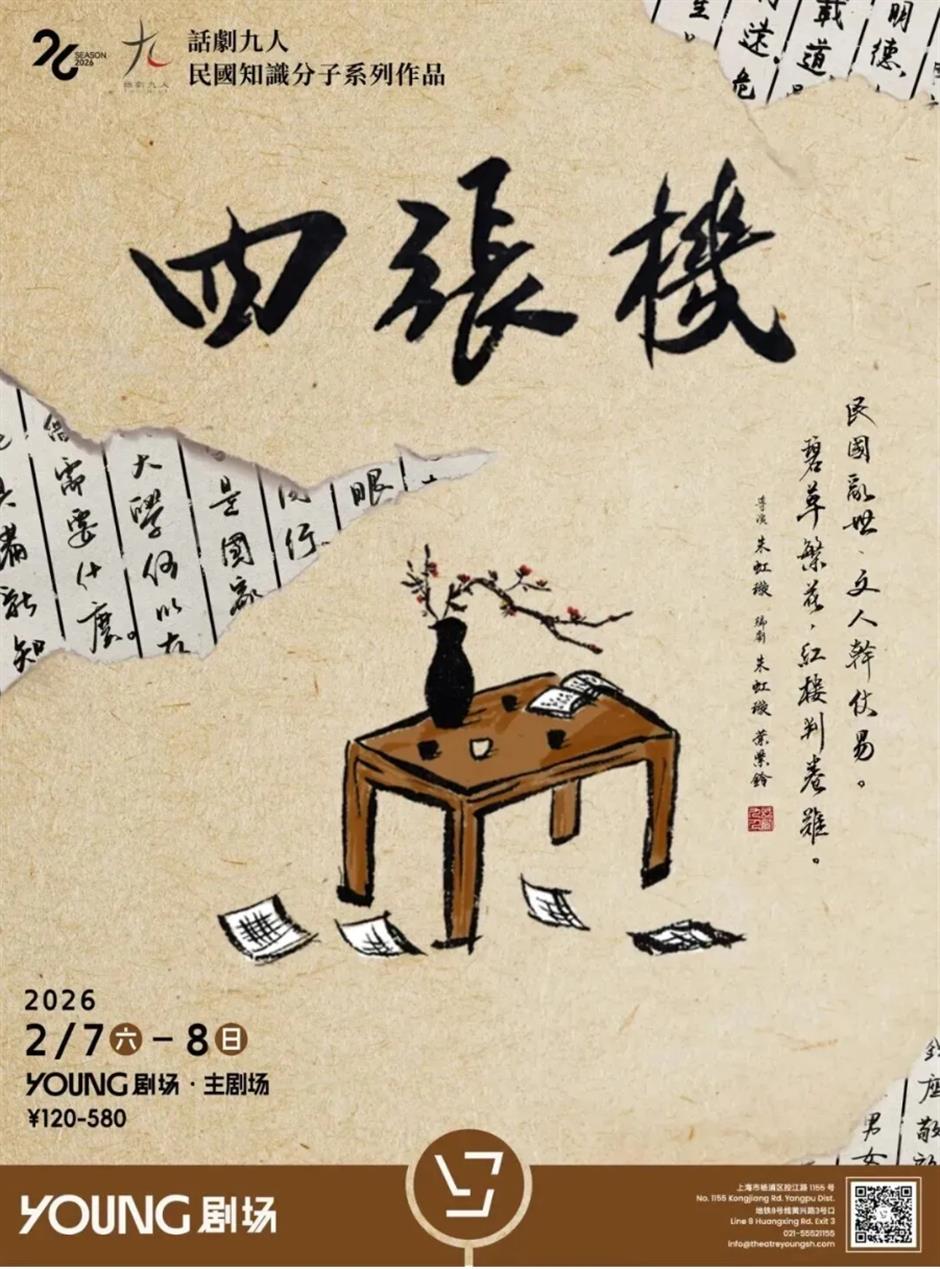 26 SEASON 2026
九
話劇九人
話劇九人
民國知識分子系列作品
明德,
載道,
遠
危
四張機
需要什麼。
大學何以
是國家
行,
眼
滿
知
民國亂世,文人幹仗易。
碧草繁花,紅樓判卷難。
導演 朱虹璇 編劇 朱虹璇 葉紫鈴
2026
2/7 六 - 8 日
YOUNG 剧场·主剧场
¥120-580
座
敬
男
女
YOUNG 剧场
上海市杨浦区控江路 1155 号
No. 1155 Kongjiang Rd. Yangpu Dist.
地铁8号线黄兴路3号口
Line 8 Huangxing Rd. Exit 3
021-55521155
info@theatreyoungsh.com